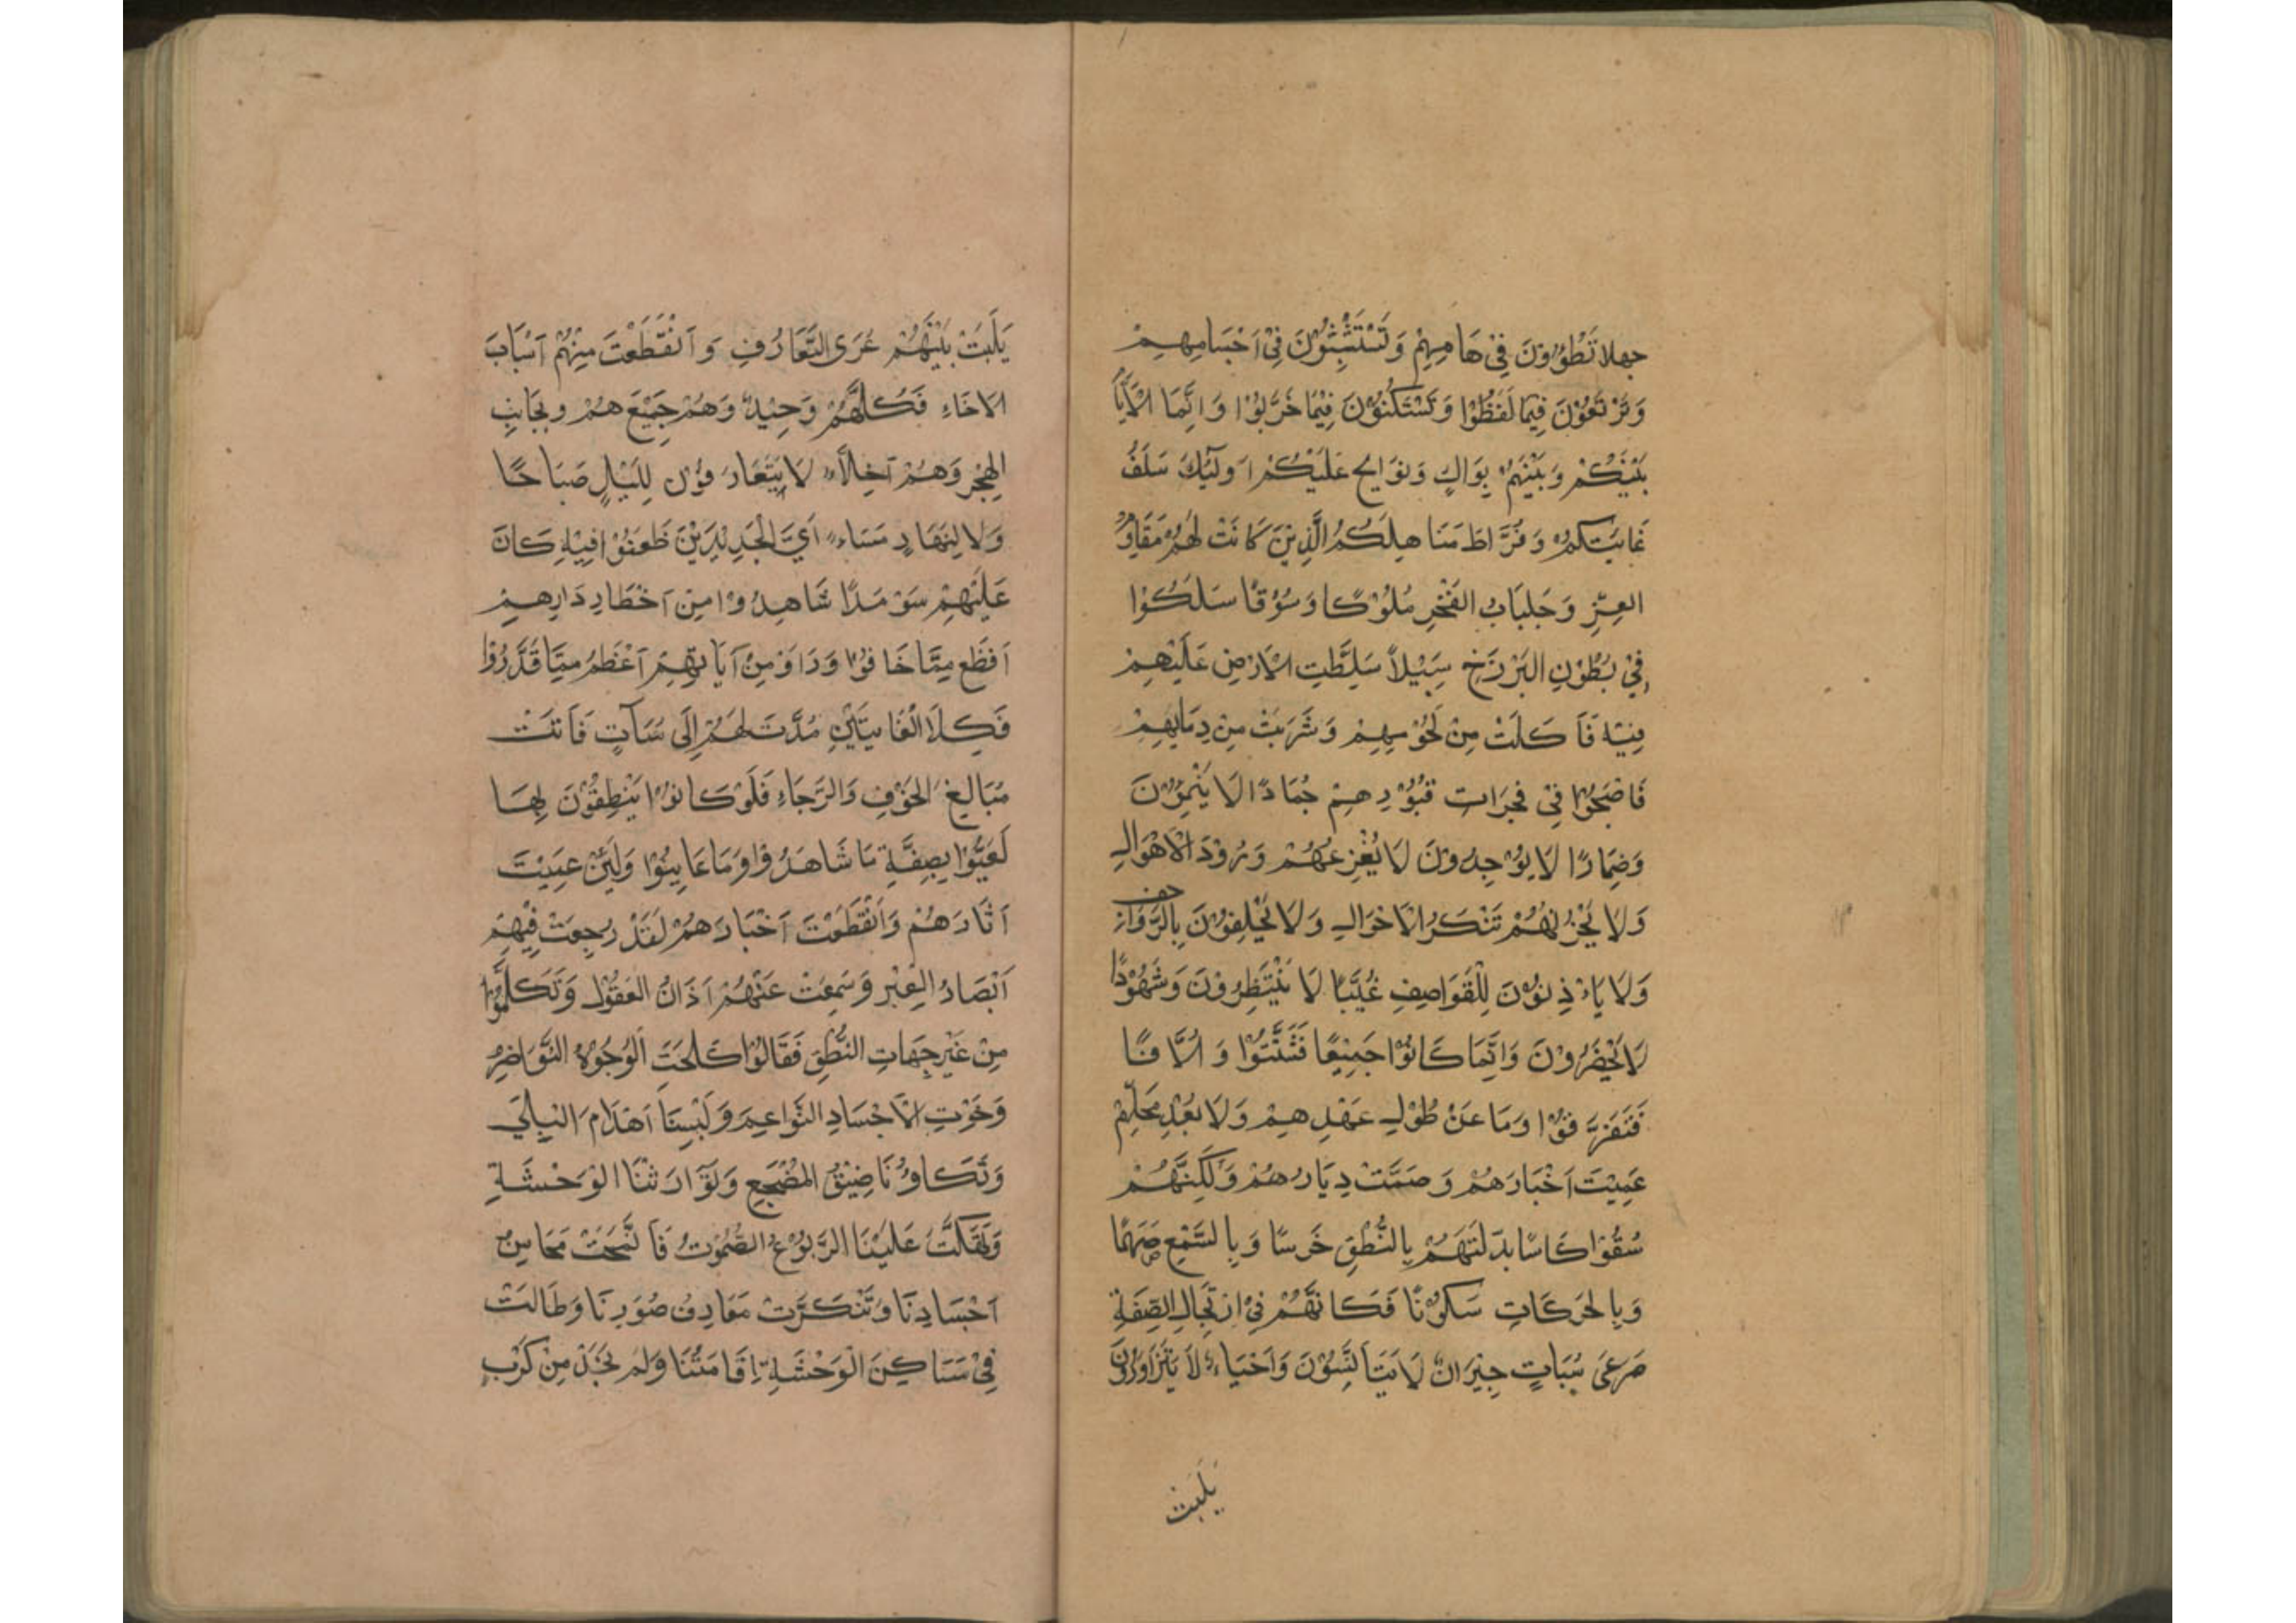 جهلا تَطَؤُوْنَ فِيْ هَامِهِمْ وَ تَسْتَثْبِتُوْنَ فِيْ اَجْسَامِهِمْ
وَتَرْتَعُوْنَ فِيْمَا لَفَظُوْا وَ تَسْتَكْنُوْنَ فِيْمَا خَرَّبُوْا وَ اِنَّمَا الْاَيَّا
بَيْنِكُمْ وَ بَيْنَهُمْ بِوَاكٍ وَ نَوَايِحِ عَلَيْكُمْ اَولَئِكَ سَلَفُ
غَايَتِكُمْ وَ فُرَّاطُ مَنَاهِلِكُمُ الَّذِيْنَ كَانَتْ لَهُمْ مَقَاوِمُ
العِزِّ وَ حَلْبَابُ الفَخْرِ مُلُوْكًا وَ سُوْقًا سَلَكُوْا
فِيْ بُطُوْنِ البَرْزَخِ سَبِيْلاً سَلِّطَتِ الْاَرْضِ عَلَيْهِمْ
فِيْهِ فَاَكَلَتْ مِنْ لُحُوْمِهِمْ وَ شَرَبَتْ مِنْ دِمَايِهِمْ
فَاصْبَحُوْا فِيْ فَجَرَات قُبُوْرِهِمْ جُمَادًا لَا يَنْمِوْنَ
وَضِمَارًا لَا يُوْجِدُونَ لَا يُفْزِعُهُمْ وَرُوْدَ الْاَهْوَالِ
وَلَا يَحْزُنُهُمْ تَنَكَرُ الْاَحْوَالِ وَلَا يَحْلِفُوْنَ بِالرَّوَازِحف
وَلَا يَاْذِنُوْنَ لِلْقَوَاصِفِ غُيَّبًا لَا يَنْتَظِرُوْنَ وَ شُهُوْدًا
لَا يَحْضَرُوْنَ وَ اِنَّمَا كَانُوْا جَمِيْعًا فَتَشَتَّتُوْا وَ اُلَّافًا
فَتَفَرَّقُوْا وَمَا عَنْ طُوْلِ عَهْدِهِمْ وَلَا بُعْدِ مَحَلِّهِمْ
عَمِيْتَ اَخْبَارَهُمْ وَ صَمَّتْ دِيَارُهُمْ وَلَكِنَّهُمْ
سُقُوْا كَاسًا بَدَلَتْهُمْ بِالنُّطْقِ خَرَسًا وَ بِالسَّمْعِ صَمَمًا
وَ بِالحَرَكَاتِ سَكُوْنًا فَكَانَّهُمْ فِيْ اِرْتِجَالِ الصِّفَةِ
صَرْعَى سُبَاتٍ جِيْرَانٌ لَا يَتَاَنَّسُوْنَ وَ اَحْيَاءٌ لَا يَتَزَاوَرُوْنَ
يَلَبَتْ
يَلَبَتْ بَيْنَهُمْ عُرَى التَّعَارُفِ وَ اَنْقَطَعَتْ مِنْهُمْ اَسْبَابَ
الاخَاءِ فَكُلُّهُمْ وَحِيْدٌ وَهُمْ جَمِيْعَ هُمْ وبِجَانِبِ
الهِجْرِ وَهُمْ اَخِلَّاءُ لَا يَتَعَارَفُوْنَ لِلَيْلٍ صَبَاحًا
وَلَا لِنَهَارٍ مَسَاءً اَيَّ الْجَدِيْدَيْنِ ظَعَنُوْا فِيْهِ كَانَ
عَلَيْهِمْ سَرْمَدًا شَاهِدُوْا مِنْ اَخْطَارِ دَارِهِمْ
اَفظَعَ مِمَّا خَافُوْا وَرَاَوْ مِنْ اَيَاتِهِمْ اَعْظَمُ مِمَّا قَدَّرُوْا
فَكِلَا الْغَايَتَيْنِ مُدَّتَ لَهُمْ اِلَى مُبَاَتٍ فَاتَتْ
مَبَالِغَ الخَوْفِ وَالرَّجَاءِ فَلَوْ كَانُوْا يَنْطِقُوْنَ بِهَا
لَعَيُّوْا بِصِفَةِ مَا شَاهَدُوْا وَمَا عَايِنُوْا وَلَئِنْ عَمِيْتَ
اَثَارَهُمْ وَانْقَطَعْتَ اَخْبَارَهُمْ لَقَدْ رَجِعَتْ فِيْهِمْ
اَبْصَارُ العِبْرِ وَسَمِعَتْ عَنْهُمْ اَذَانُ العَقُوْلِ وَتَكَلَّمُوْا
مِنْ غَيْرِ جِهَاتِ النُّطْقِ فَقَالُوْا كَلَحَتَ الْوُجُوْهُ النَّوَاضِرُ
وَخَوَتِ الْاَجْسَادِ النَّوَاعِمَ وَ لَبِسْنَا اَهْدَامَ البِلَى
وَتَكَاوُنَا ضِيْقُ المَضْجَعِ وَ تَوَارَثْنَا الوَحْشَةِ
وَتَهَكَّتْ عَلَيْنَا الرَّبُوْعُ الصُّمُوْتُ فَانْمَحَتْ مَحَاسِنُ
اَجْسَادِنَا وَ تَنْكَرَّتْ مَعَارِفُ صُوَرِنَا وَ طَالَتْ
فِيْ مَسَاكِنَ الْوَحْشَةِ اِقَامَتُنَا وَلَمْ نَجَدْ مِنْ كَرْبٍ